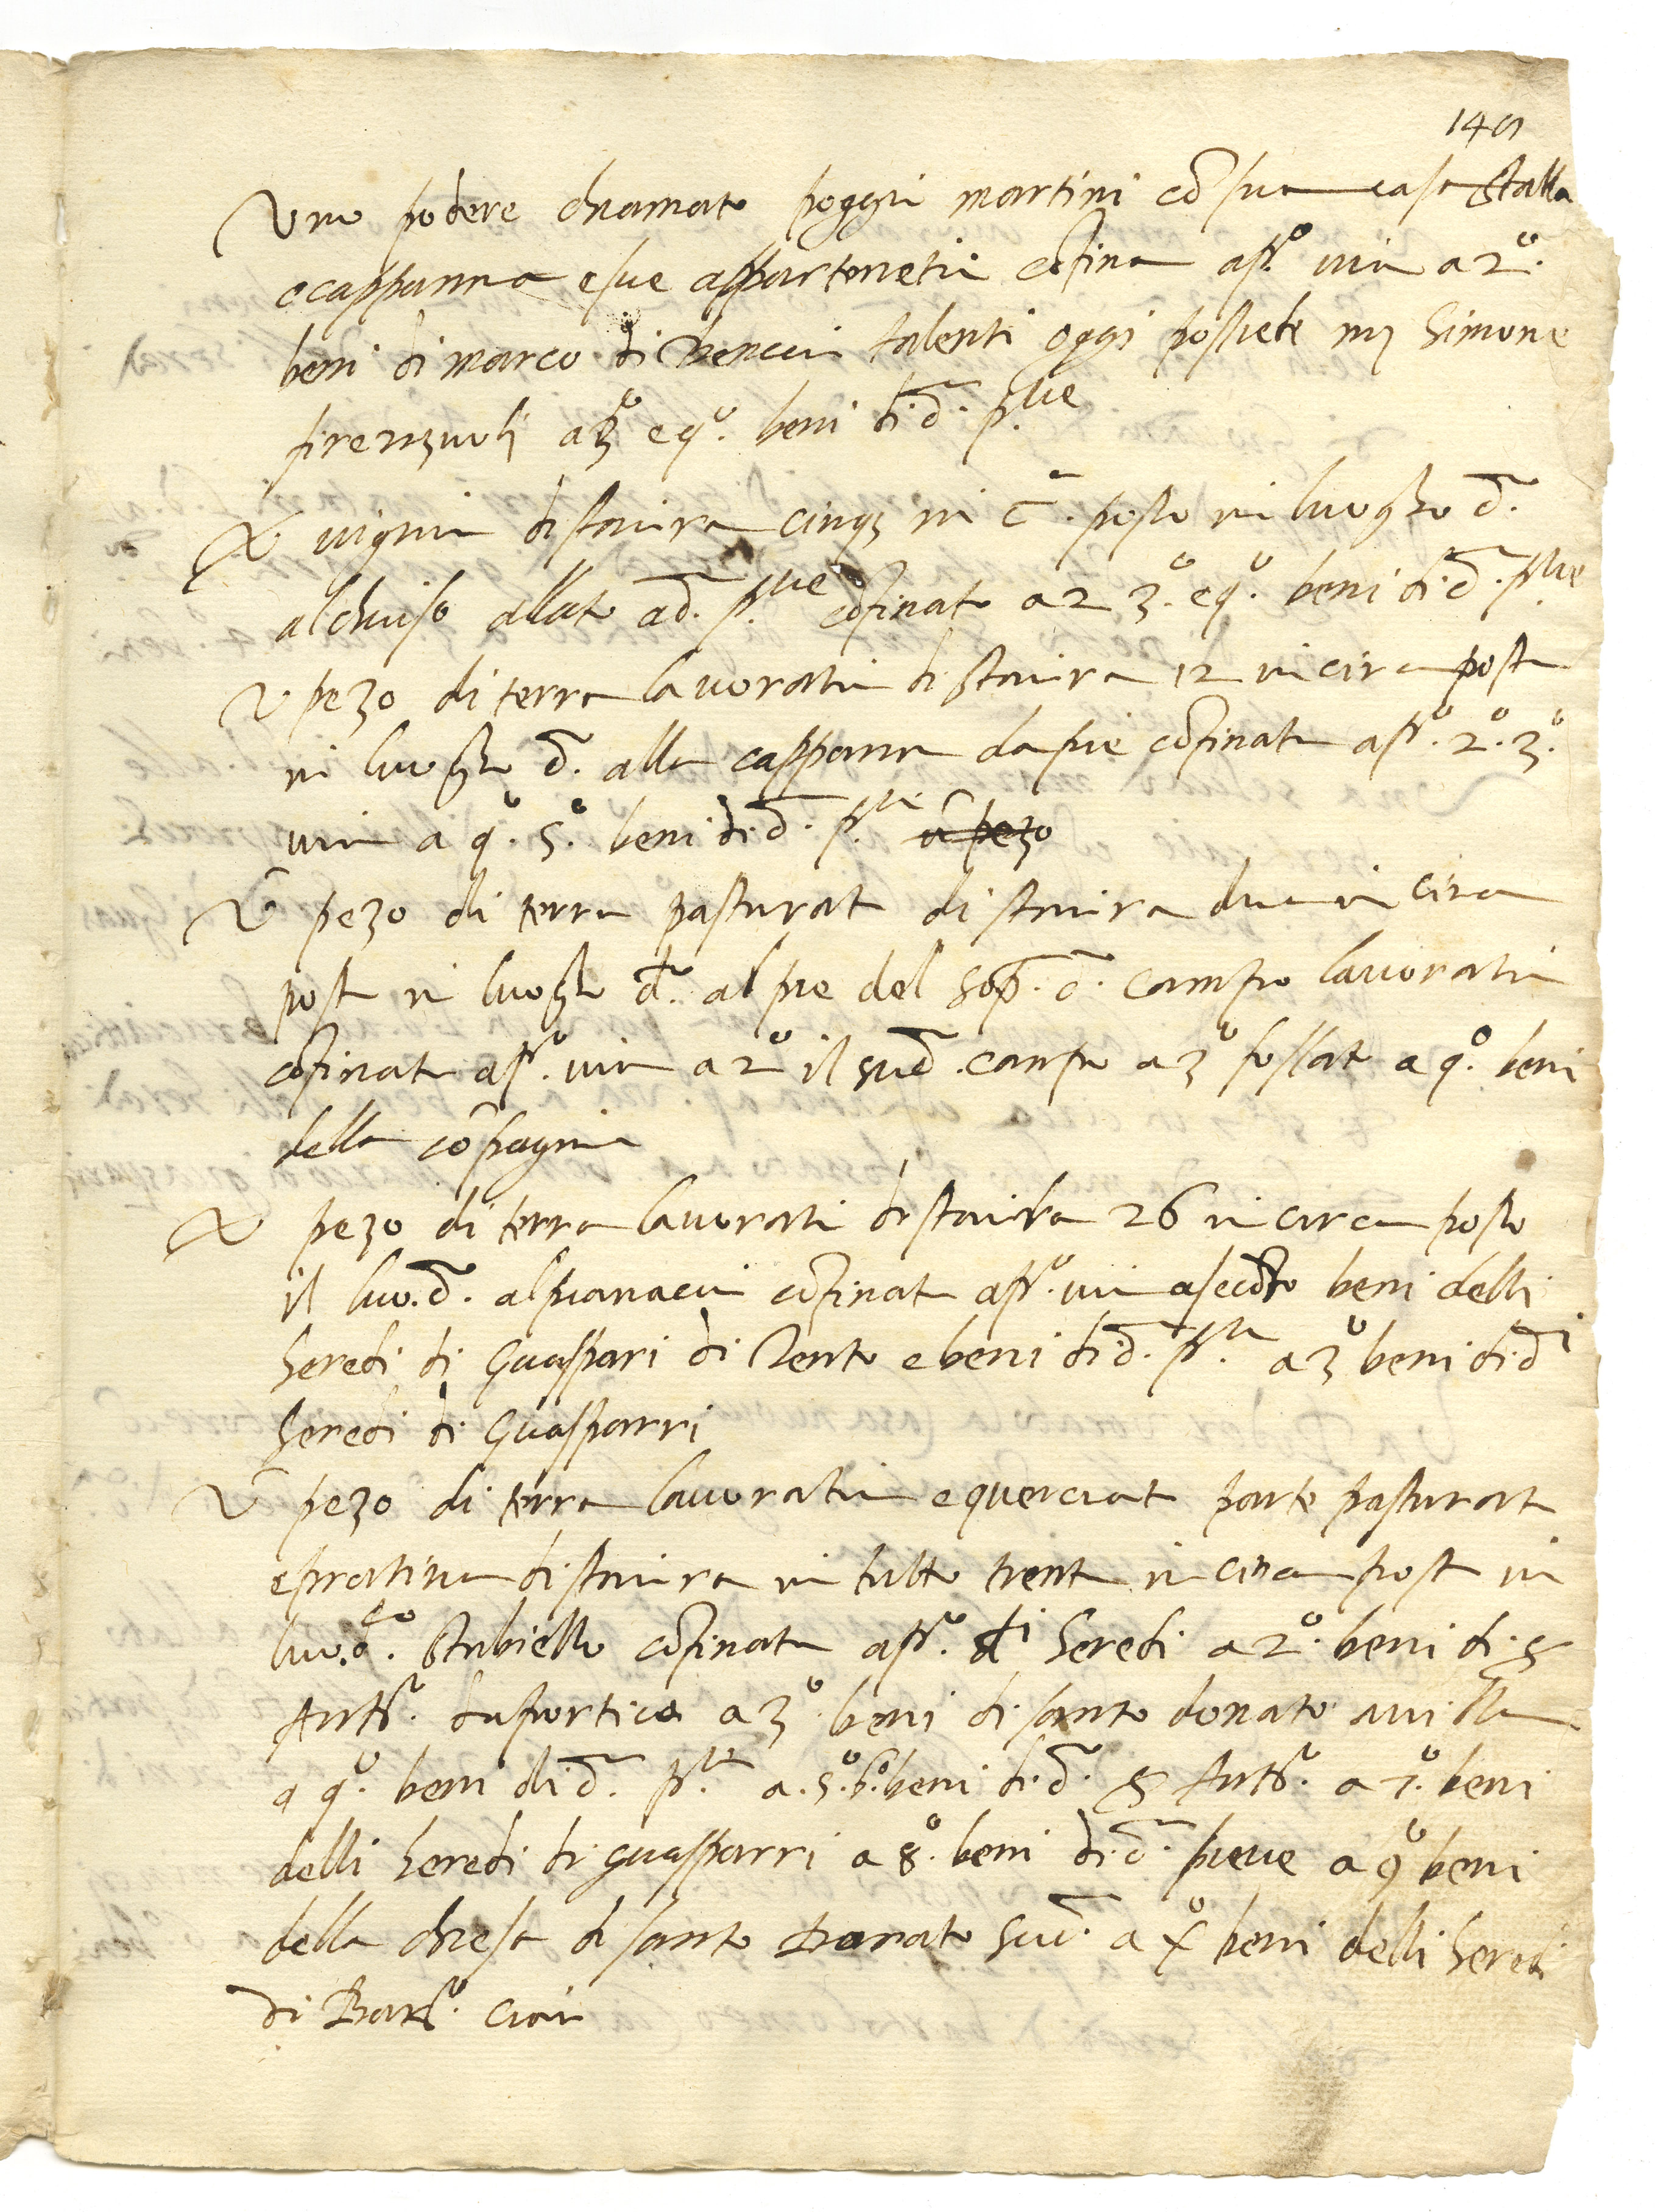 149
Uno podere chiamato poggio martini cō sua casa stalla
e cappanna e sue appartenetie cōfina a pº via a 2º.
beni di marco di Nencio talenti oggi possiede mʒ Simone
firenzuoli a 3º e qº. beni di.d. pue
vignia di staiora cinqʒ in cª. posto in luogho d.
al chiuso allato a d. pue cōfinato a 2 3º. e qº. beni di.d. pue
Uº pezo di terra lavoratia di staiora 12 in circa posta
in luogho d. alla cappanna da pie cōfinata a pº. 2º. 3º.
via a qº. 5º. beni di.d. pue ū pezo
Uº pezo di terra pasturata di staiora dua in circa
posta in luogho d. al pie del sop. d. campo lavoratio
cōfinata a pº. via a 2º il sud. campo a 3º fossato a qº. beni
della cōpagnia
pezo di terra lavoratia di staiora 26 in circa posto
il luo.d. al pianaccio cōfinata a pº. via a secōdo beni delli
heredi di Guaspari di Nento e beni di.d. pue a 3º beni di.di
heredi di Guasparri
Uº pezo di terra lavoratia e querciata parte pasturata
e pratiua di staiora in tutto trenta in circa posta in
luo.dº. Stubiello cōfinata a pº. di heredi a 2º. beni di. S
Antº. da portico a 3º beni di santo donato a villa
a qº. beni di d. pue a. 5º. 6º. beni di.d. S Antº. a 7º. beni
delli heredi di guasparri a 8º. beni di.d. pieve a 9º beni
della chiesa di santo Donato sud. a Xº beni delli heredi
di Bartº. ciai